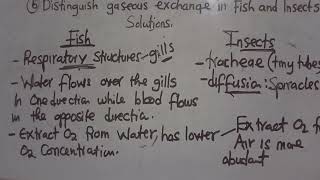 (b) Distinguish gaseous exchange in Fish and Insects
Solutions.
Fish
- Respiratory Structures - gills
- Water flows over the gills
in One direction while blood flows
in the opposite direction.
- Extract O2 from Water, has lower
O2 Concentration.
Insects
- tracheae (tiny tubes
- diffusion: Spiracles
- Extract O2 f
Air is more
abundant